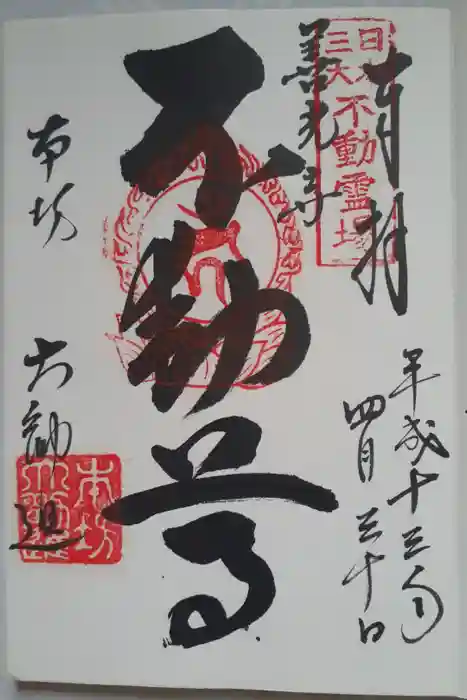 奉拝
日本
三大不動霊場
平成十三年
四月三十日
善光寺
不動尊
本坊 大勧進
本坊
大勧進